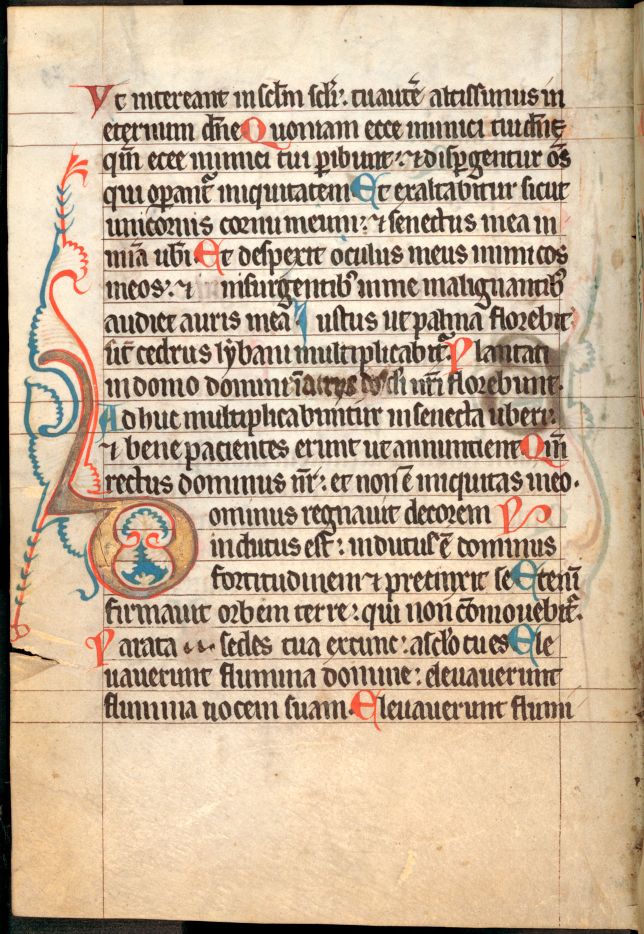 Vt intereant in sclm scli: tu autē altissimus in
eternum dn̄e Quoniam ecce inimici tui dn̄e
qm̄ ecce inimici tui ꝑibunt: ⁊ disꝑgentur om̄s
qui oꝑant᷑ iniquitatem Et exaltabitur sicut
unicornis cornu meum: ⁊ senectus mea in
mīa ub̄i Et despexit oculus meus inimicos
meos: ⁊ insurgentib᷒ in me malignantib᷒
audiet auris mea Iustus ut palma florebit
sic̄ cedrus lybani multiplicabit᷑ Plantati
in domo domini nr̄i florebunt.
Adhuc multiplicabuntur in senecta uberi:
⁊ bene pacientes erunt ut annuntient Qm̄
rectus dominus nr̄: et non ē iniquitas in eo.
Dominus regnauit decorem
indutus est: indutus ē dominus
fortitudinem ⁊ precinxit se Eteni̅
firmauit orbem terre: qui non cōmouebit᷑.
Parata sedes tua ex tunc: a sclo tu es Ele
uauerunt flumina domine: eleuauerunt
flumina uocem suam. Eleuauerunt flumi